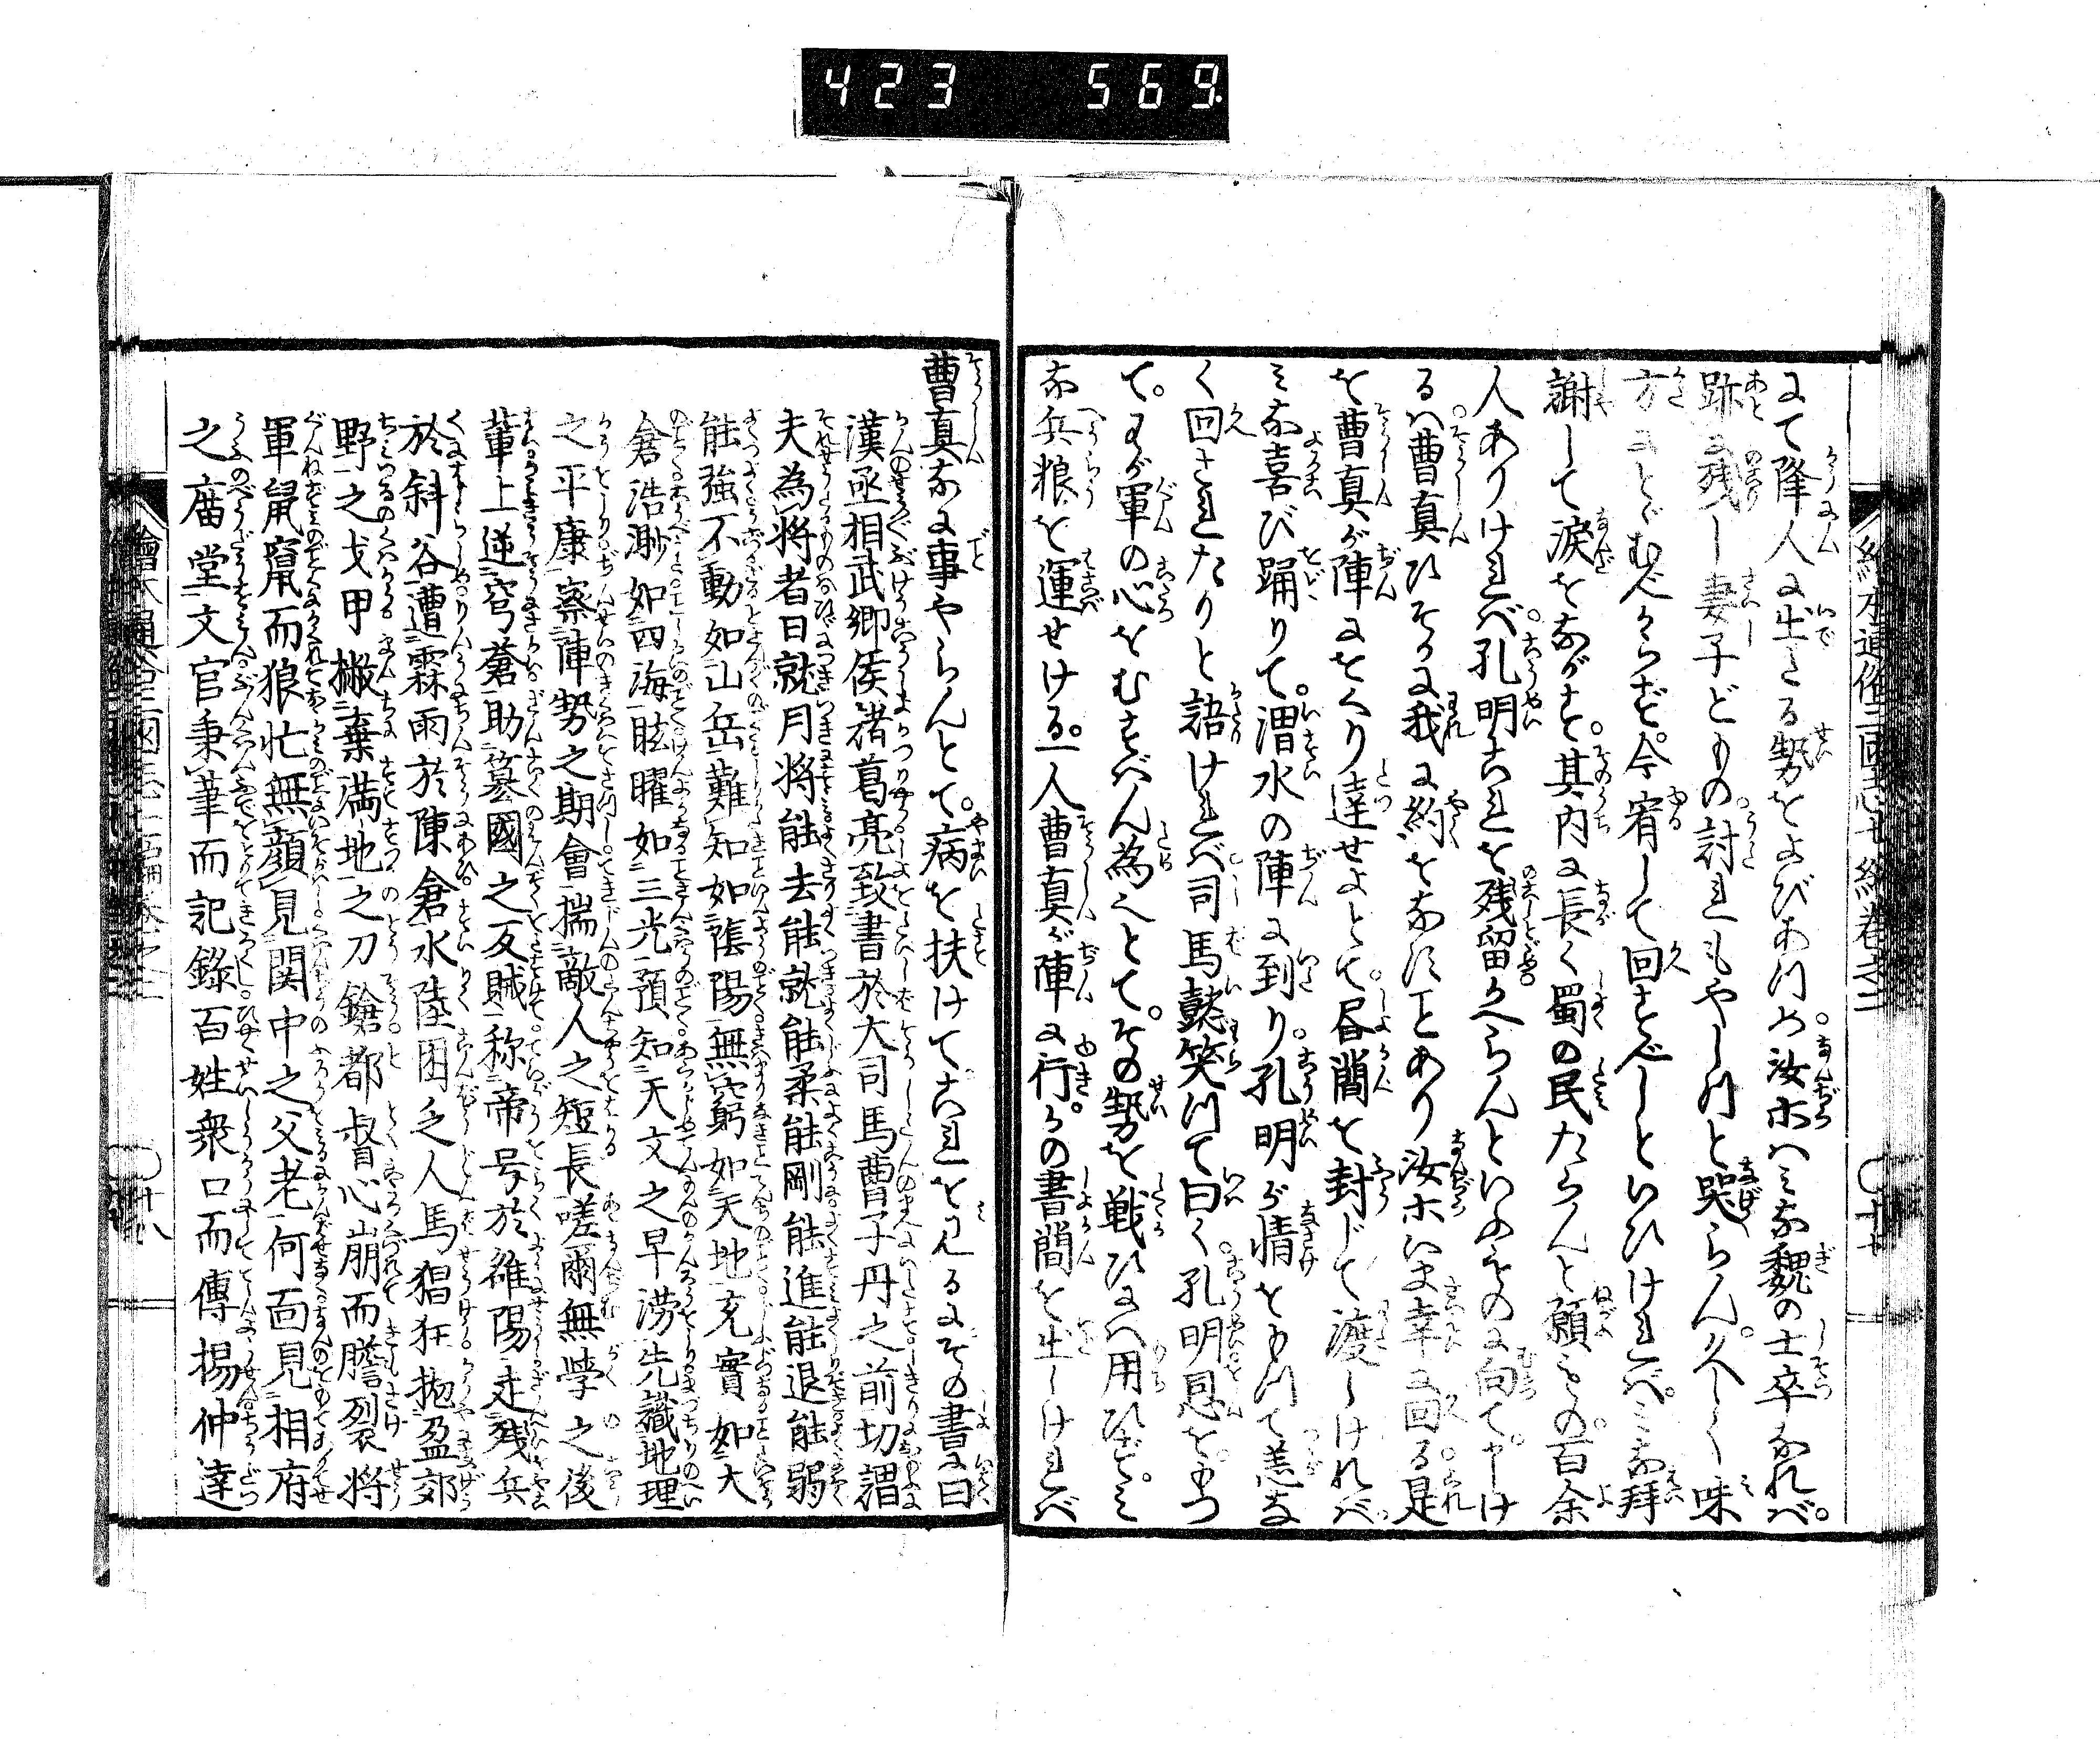 423 569
にて降人に出たる勢をよびあつめ。汝ホハミな魏の士卒なれバ。
跡に残し妻子どもの討れもやしつと哭らん。久しく味
方にとゞむべからず。今宥して回すべしといひけれバ。ミな拜
謝して涙をながす。其内に長く蜀の民たらんと願もの百余
人ありけれバ。孔明これを残留。かへらんといふものに向て申け
るハ。曹真ひそかに我に約をなすことあり汝ホいま幸に回る是
を曹真が陣にをくり達せよとて。書簡を封じて渡しけれバ
ミな喜び踊りて。渭水の陣に到り。孔明が情をもつて恙な
く回されたりと語けれバ司馬懿笑つて曰く。孔明恩をもつ
て。わが軍の心をむすばん為也とて。その勢を戦ひにハ用ひず。ミ
な兵粮を運せける。一人曹真が陣に行。かの書簡を出しけれバ
曹真なに事やらんとて。病を扶けてこれを見るにその書に曰
漢丞相武郷侯諸葛亮致書於大司馬曹子丹之前切謂
夫為将者日就月将能去能就能柔能剛能進能退能弱
能強不動如山岳難知如陰陽無窮如天地充實如大
倉浩渺如四海眩曜如三光預知天文之旱澇先識地理
之平康察陣勢之期會揣敵人之短長嗟爾無學之後
輩上逆穹蒼助簒國之反賊称帝号於雒陽走殘兵
於斜谷遭霖雨於陳倉水陸困乏人馬猖狂抛盈郊
野之戈甲撇棄満地之刀鎗都督心崩而膽裂将
軍鼠竄而狼忙無顔見関中之父老何面見相府
之庿堂文官秉筆而記錄百姓衆口而傳揚仲達